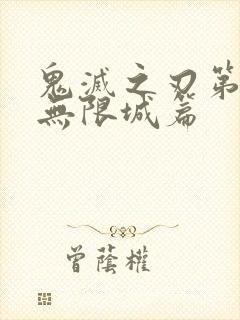 鬼滅之刃第
無限城篇
曾蔭權